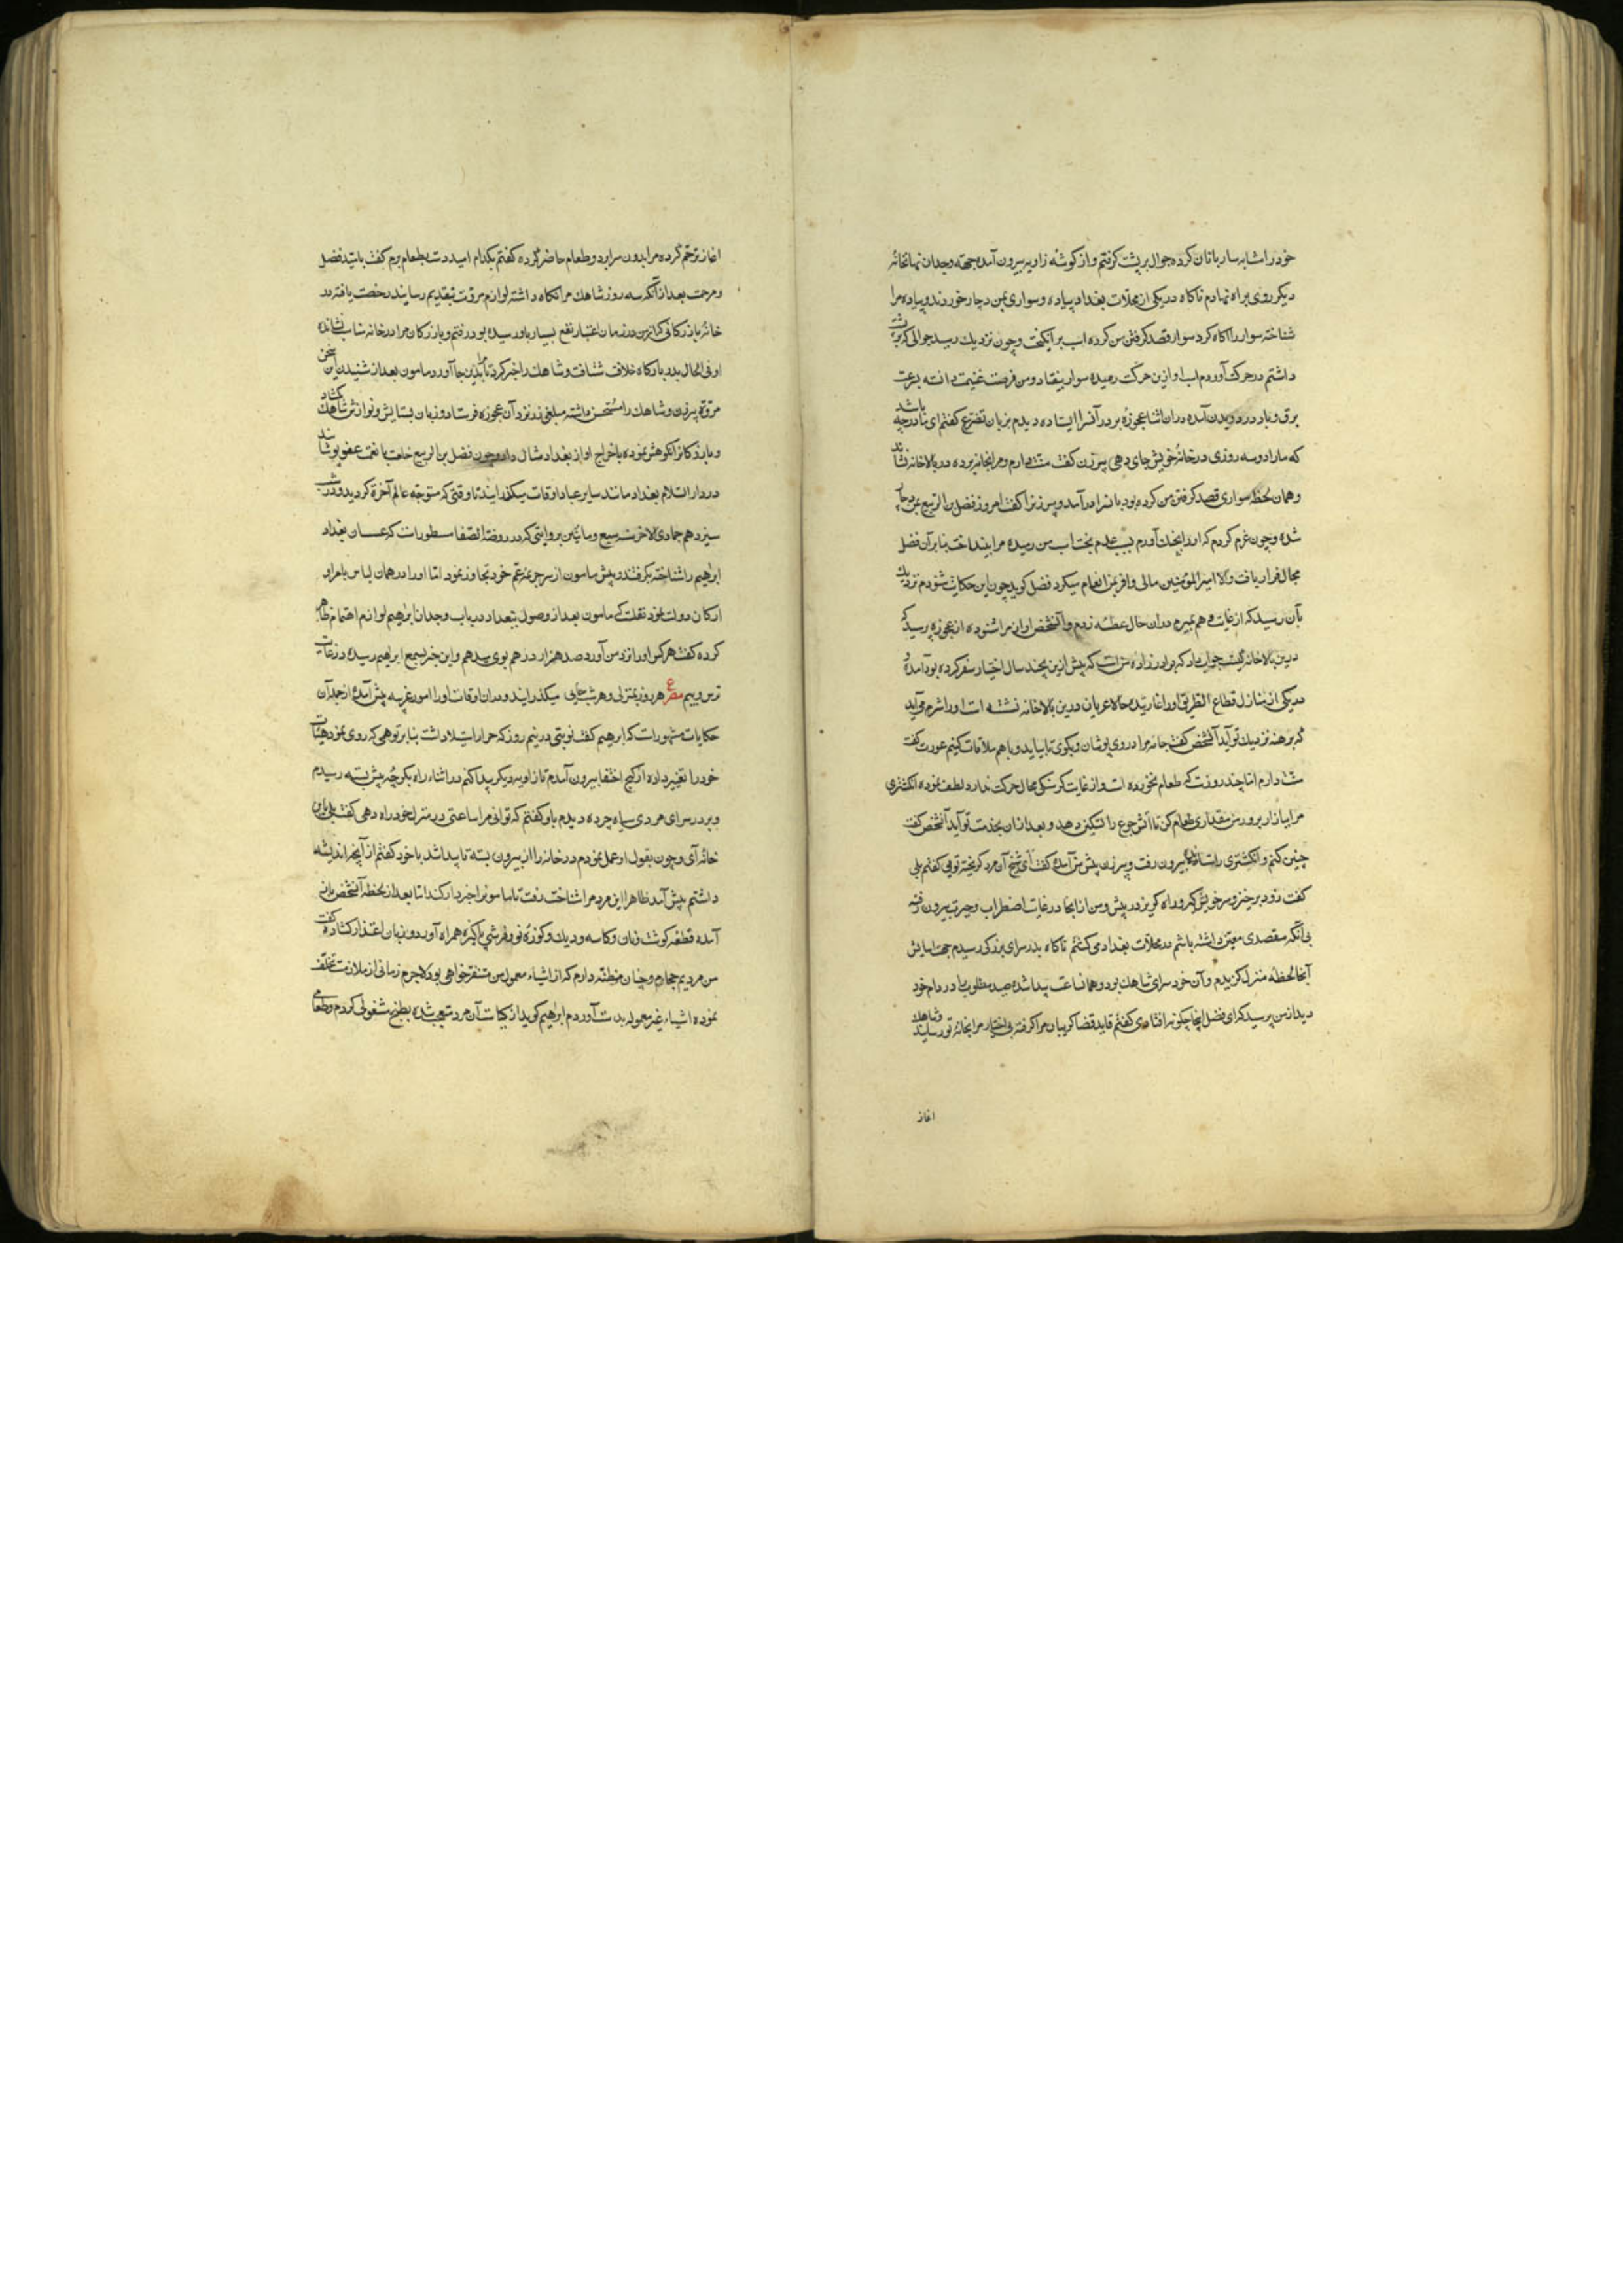 خود را مشابه ساربانان کرده جوال بر پشت گرفتم و از گوشه زاویه بیرون آمده جهة وجدان نهانخانه
دیگر روی براه نهادم ناکاه در یکی از محلات بغداد پیاده و سواری بمن دچار خوردند و پیاده مرا
شناخته سوار را آکاه کرد سوار قصد گرفتن من کرده اسب برانگیخت و چون نزدیک رسید جوالی که بر پشت
داشتم در حرکت آوردم اسب او ازین حرکت رمیده سوار بیفتاد و من فرصت غنیمت دانسته بسرعت
برق و باد در دویدن آمده در ان اثنا عجوزه بر در آنسرا ایستاده دیدم بزبان تضرع گفتم ای مادر چه باشد
که مارا دو سه روزی در خانهٔ خویش جای دهی پیر زن گفت منت دارم و مرا بخانه برده در بالاخانه نشاند
و همان لحظه سواری قصد گرفتن من کرده بود بدانسرا درآمد و پیر زنرا گفت امروز فضل بن الربیع بمن دچار
شده و چون عزم کردم که او را بچنک آورم بسبب عدم بخت اسب من رمیده مرا بینداخت بنابر آن فضل
مجال فرار یافت والا امیر المؤمنین مالی وافر بمن انعام میکرد فضل کوید چون این حکایت شنودم نزدیک
بآن رسید که از غایت وهم بمیرم در ان حال عطسه زدم و آنشخص اواز مرا شنوده از عجوزه پرسید که
درین بالاخانه کیست جواب داد که برادر زاده من است که پیش ازین بچند سال اختیار سفر کرده بود آمده و
در یکی از منازل قطاع الطریق اورا غارتیده حالا عریان درین بالاخانه نشسته است اورا شرم می آید
که برهنه نزدیک تو آید آنشخص گفت جامه مرا در وی پوشان و بکوی تا بیاید و با هم ملاقات کنیم عورت گفت
منت دارم اما چند روزست که طعام نخورده است و از غایت کرسنکی مجال حرکت ندارد لطف نموده انکشتری
مرا ببازار برو و رهن مقداری طعام کن تا آتش جوع را تسکین دهد و بعد از ان بخدمت تو آید آنشخص گفت
چنین کنم و انکشتری را ستانده بیرون رفت و پیر زن پیش من آمده گفت ای شیخ آن مرد کریخته تویی گفتم بلی
گفت زود برخیز و سر خویش گیر و راه کریز در پیش و من از انجا در غایت اضطراب و حیرت بیرون رفته
بی آنکه مقصدی معین داشته باشم در محلات بغداد می کشتم ناکاه بدر سرای بزرکی رسیدم جهت اسایش
آنجا لحظه منزل گزیدم و آن خود سرای شاهک بود و همان ساعت پیدا شده صید مطلوب را در دام خود
دید از من پرسید که ای فضل اینجا چگونه افتادی گفتم قاید قضا کریبان مرا گرفته بی اختیار مرا بخانهٔ تو رسانید شاهک
اغاز
اغاز ترحم کرده مرا بدرون سرا برد و طعام حاضر کرده گفتم بکدام امید دست بطعام برم گفت بامید فضل
و مرحمت بعد از آنکه سه روز شاهک مرا نکاه داشته لوازم مروت بتقدیم رسانید رخصت یافته در
خانهٔ بازرکانی که از من در زمان اعتبار نفع بسیار باو رسیده بود رفتم و بازرکان مرا در خانه نشانده
و فی الحال بدر بارکاه خلافت شتافت و شاهک را خبر کرد تا مرا بدین جا آورد مامون بعد از شنیدن این سخن
مروت پیر زن و شاهک را مستحسن داشته مبلغی زر نزد آن عجوزه فرستاد و زبان بستایش و نوازش شاهک کشاد
و بازرکانرا نکوهش نموده باخراج او از بغداد مثال داد و چون فضل بن الربیع خلعت با نعمت عفو پوشاند
در دار السلام بغداد مانند سایر عباد اوقات میکذرانید تا وقتی که متوجه عالم آخرة کردید و در شب
سیزدهم جمادی الاخر سنه سبع و مائتین بروایتی که در روضة الصفا مسطورست که عسسان بغداد
ابراهیم را شناخته بکرفتند و پیش مامون از سر جریمه عم خود تجاوز نمود اما اورا در همان لباس بامرا و
ارکان دولت نمود نقلست که مامون بعد از وصول ببغداد در باب وجدان ابراهیم لوازم اهتمام ظاهر
کرده گفت هر کس اورا نزد من آورد صد هزار درهم بوی میدهم و این خبر بسمع ابراهیم رسیده در غایت
ترس و بیم مصرع هر روز بمنزلی و هر شب جایی میکذرانید و در ان اوقات اورا امور غریبه پیش آمد از جمله آن
حکایات مشهورست که ابراهیم گفت نوبتی در نیم روز که حرارت استیلا داشت بنابر توهمی که روی نمود هیئات
خود را تغییر داده از کنج اختفا بیرون آمدم تا زاویه دیکر پیدا کنم در اثناء راه بکوچه پیش بسته رسیدم
و بر در سرای مردی سیاه چرده دیدم باو گفتم که توانی مرا ساعتی در منزل خود راه دهی گفت بلی
خانه آی و چون بقول او عمل نمودم در خانه را از بیرون بسته ناپیدا شد با خود گفتم از آنچه اندیشه
داشتم پیش آمد ظاهرا این مرد مرا شناخت رفت تا مامونرا خبردار کند اما بعد از لحظه آنشخص باز
آمده قطعه کوشت و نان و کاسه و دیک و کوزهٔ نو و فرشی پاکیزه همراه آورد و زبان اعتذار کشاده گفت
من مردیم حجام و چنان مظنه دارم که از اشیاء معموله من متنفر خواهی بود لاجرم زمانی از ملازمت تخلف
نموده اشیاء غیر معموله بدست آوردم ابراهیم کوید از آن مرد متعجب شده بطبخ مشغولی کردم و طعامی